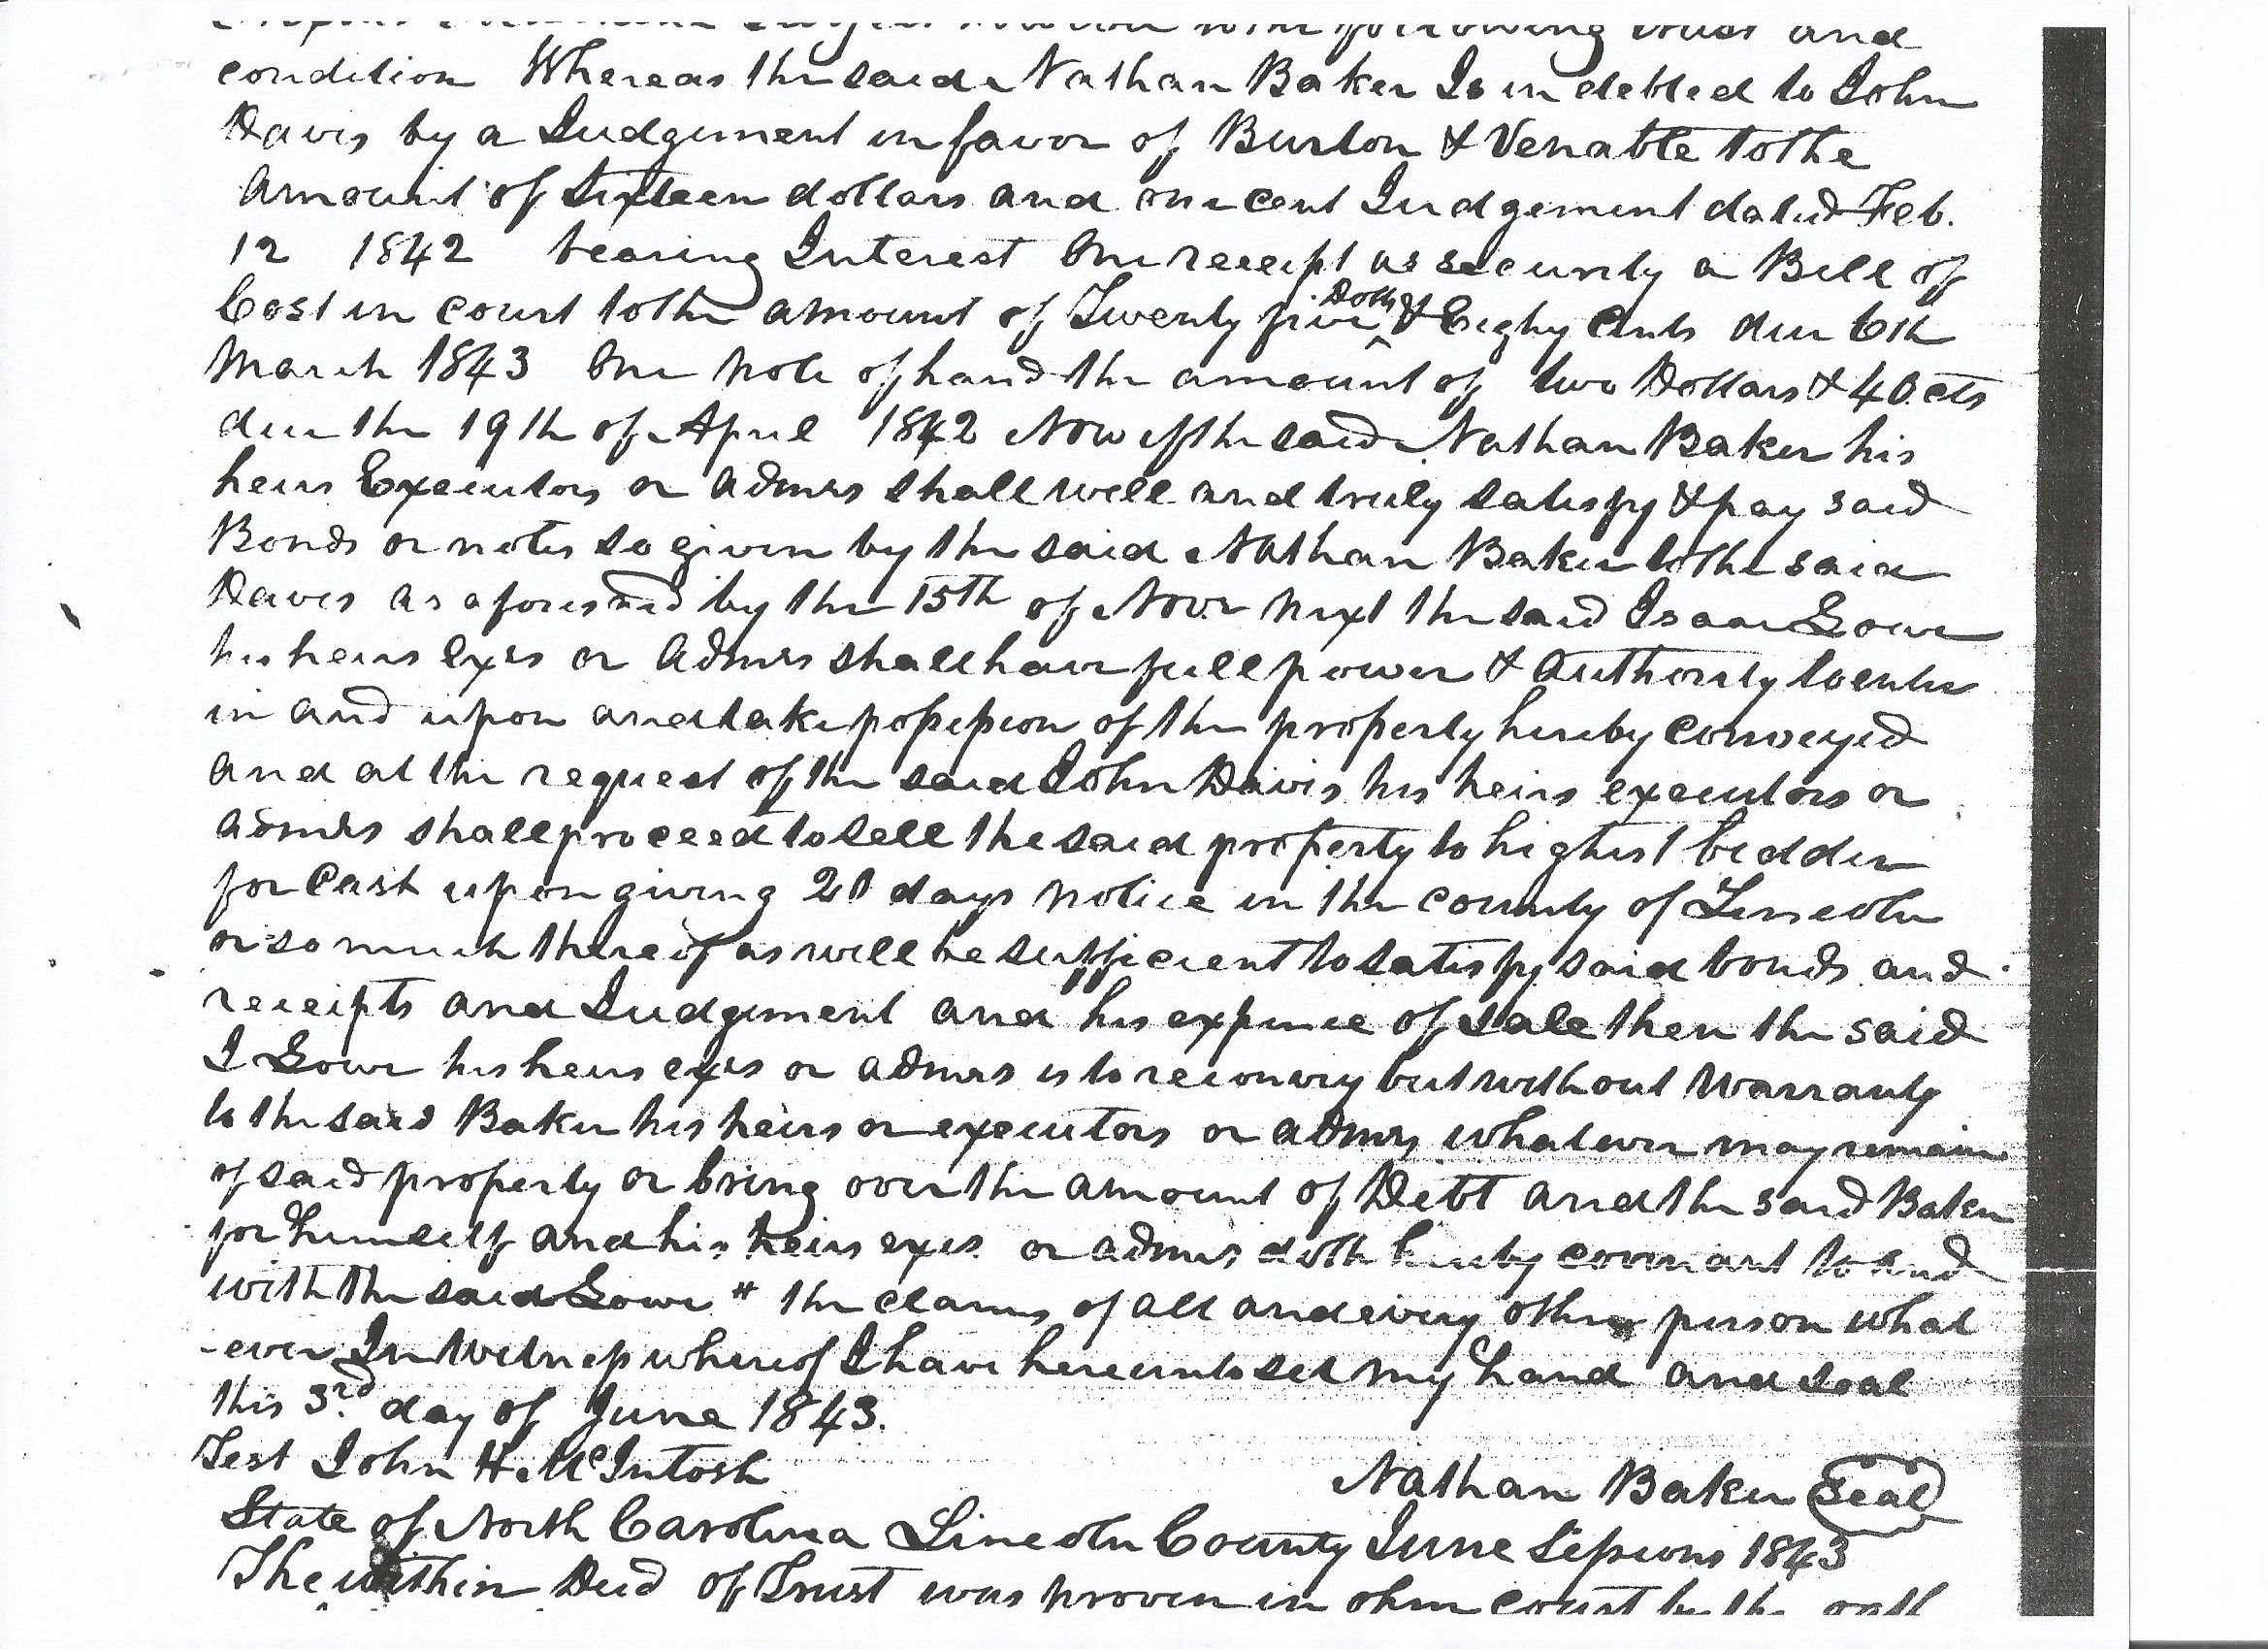 following trust and
condition Whereas the said Nathan Baker Is indebted to John
Davis by a Judgement in favor of Burton & Venable to the
amount of Sixteen dollars and one cent Judgement dated Feb.
12 1842 bearing Interest One receipt as security a Bill of
Cost in court to the amount of Twenty five Dolls & Eighy Cents due 6th
March 1843 One note of hand the amount of two Dollars & 40 cts
due the 19th of April 1842 Now if the said Nathan Baker his
heirs Executors or admrs shall well and truly satisfy & pay said
Bonds or notes so given by the said Nathan Baker to the said
Davis as aforesaid by the 15th of Novr next the said Isaac Lowe
his heirs exrs or admrs shall have full power & authority to enter
in and upon and take possession of the property hereby conveyed
and at the request of the said John Davis his heirs executors or
admrs shall proceed to sell the said property to highest bidder
for Cash upon giving 20 days notice in the county of Lincoln
or so much thereof as will be sufficient to satisfy said bonds and
receipts and Judgement and his expence of sale then the said
I Lowe his heirs exrs or admrs is to reconvey but without warranty
to the said Baker his heirs or executors or admrs whatever may remain
of said property or bring over the amount of Debt and the said Baker
for himself and his heirs exrs or admrs doth hereby covenant to and
with the said Lowe # the claims of all and every other person what
-ever In Witness whereof I have hereunto set my hand and seal
this 3rd day of June 1843.
Test John H. McIntosh
Nathan Baker Seal
State of North Carolina Lincoln County June Sessions 1843
The within Deed of Trust was proven in open court by the oath